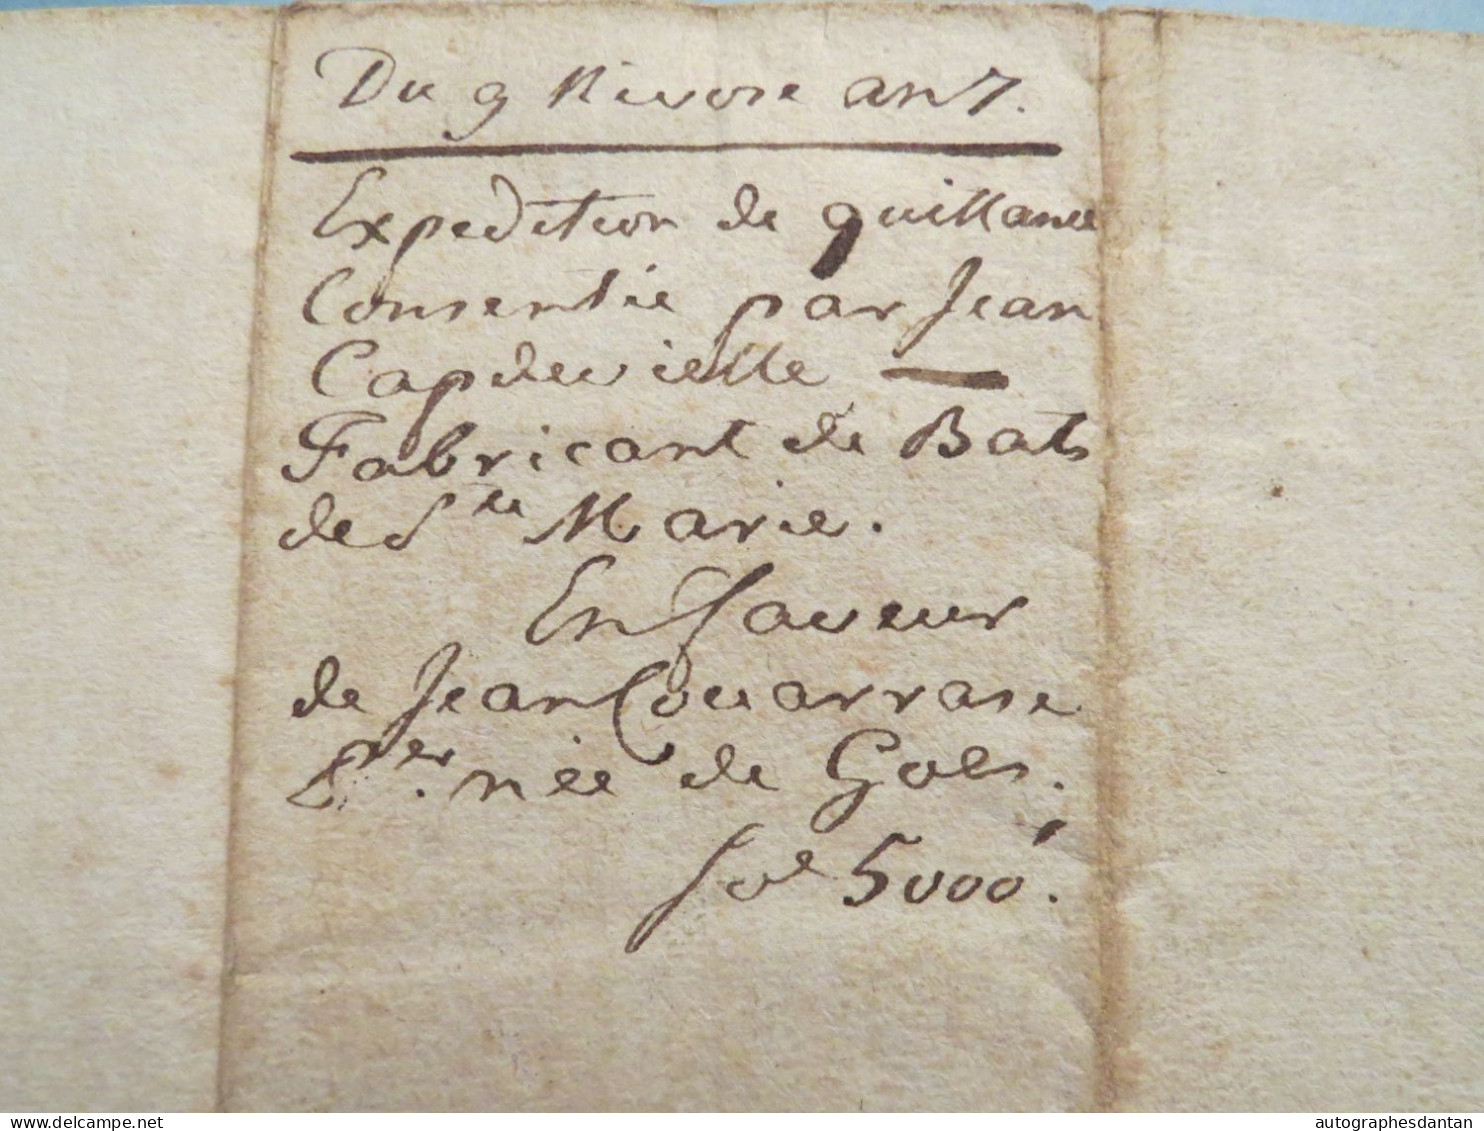 Du 9 Nivose an 7.
Expedition de quittance
Consentie par Jean
Capdevielle —
Fabricant de Bats
de Ste Marie.
En faveur
de Jean Couarrase
née de Goès.
fol 5000.
delcampe.net
autographesdantan